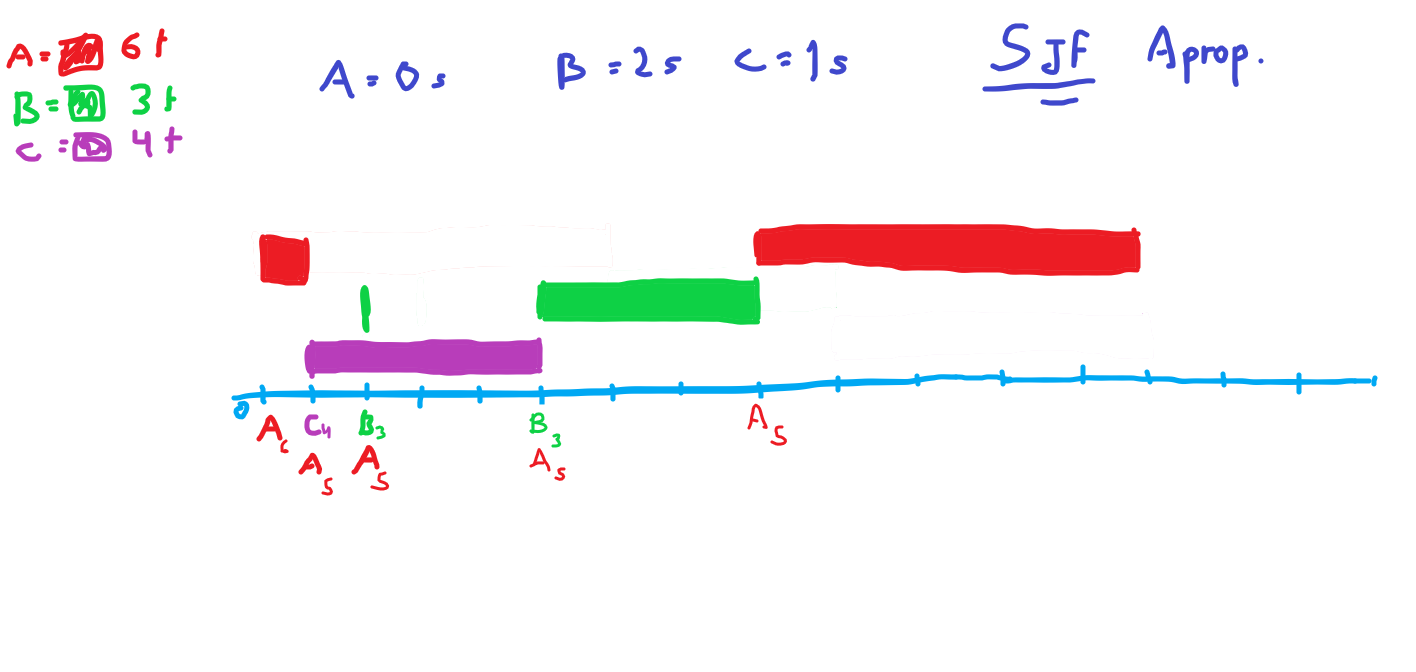 A = 6 t
B = 3 t
C = 4 t
A = 0 s B = 2 s C = 1 s SJF Aprop.
0
A6 C4 B3 B3 A5
A5 A5 A5